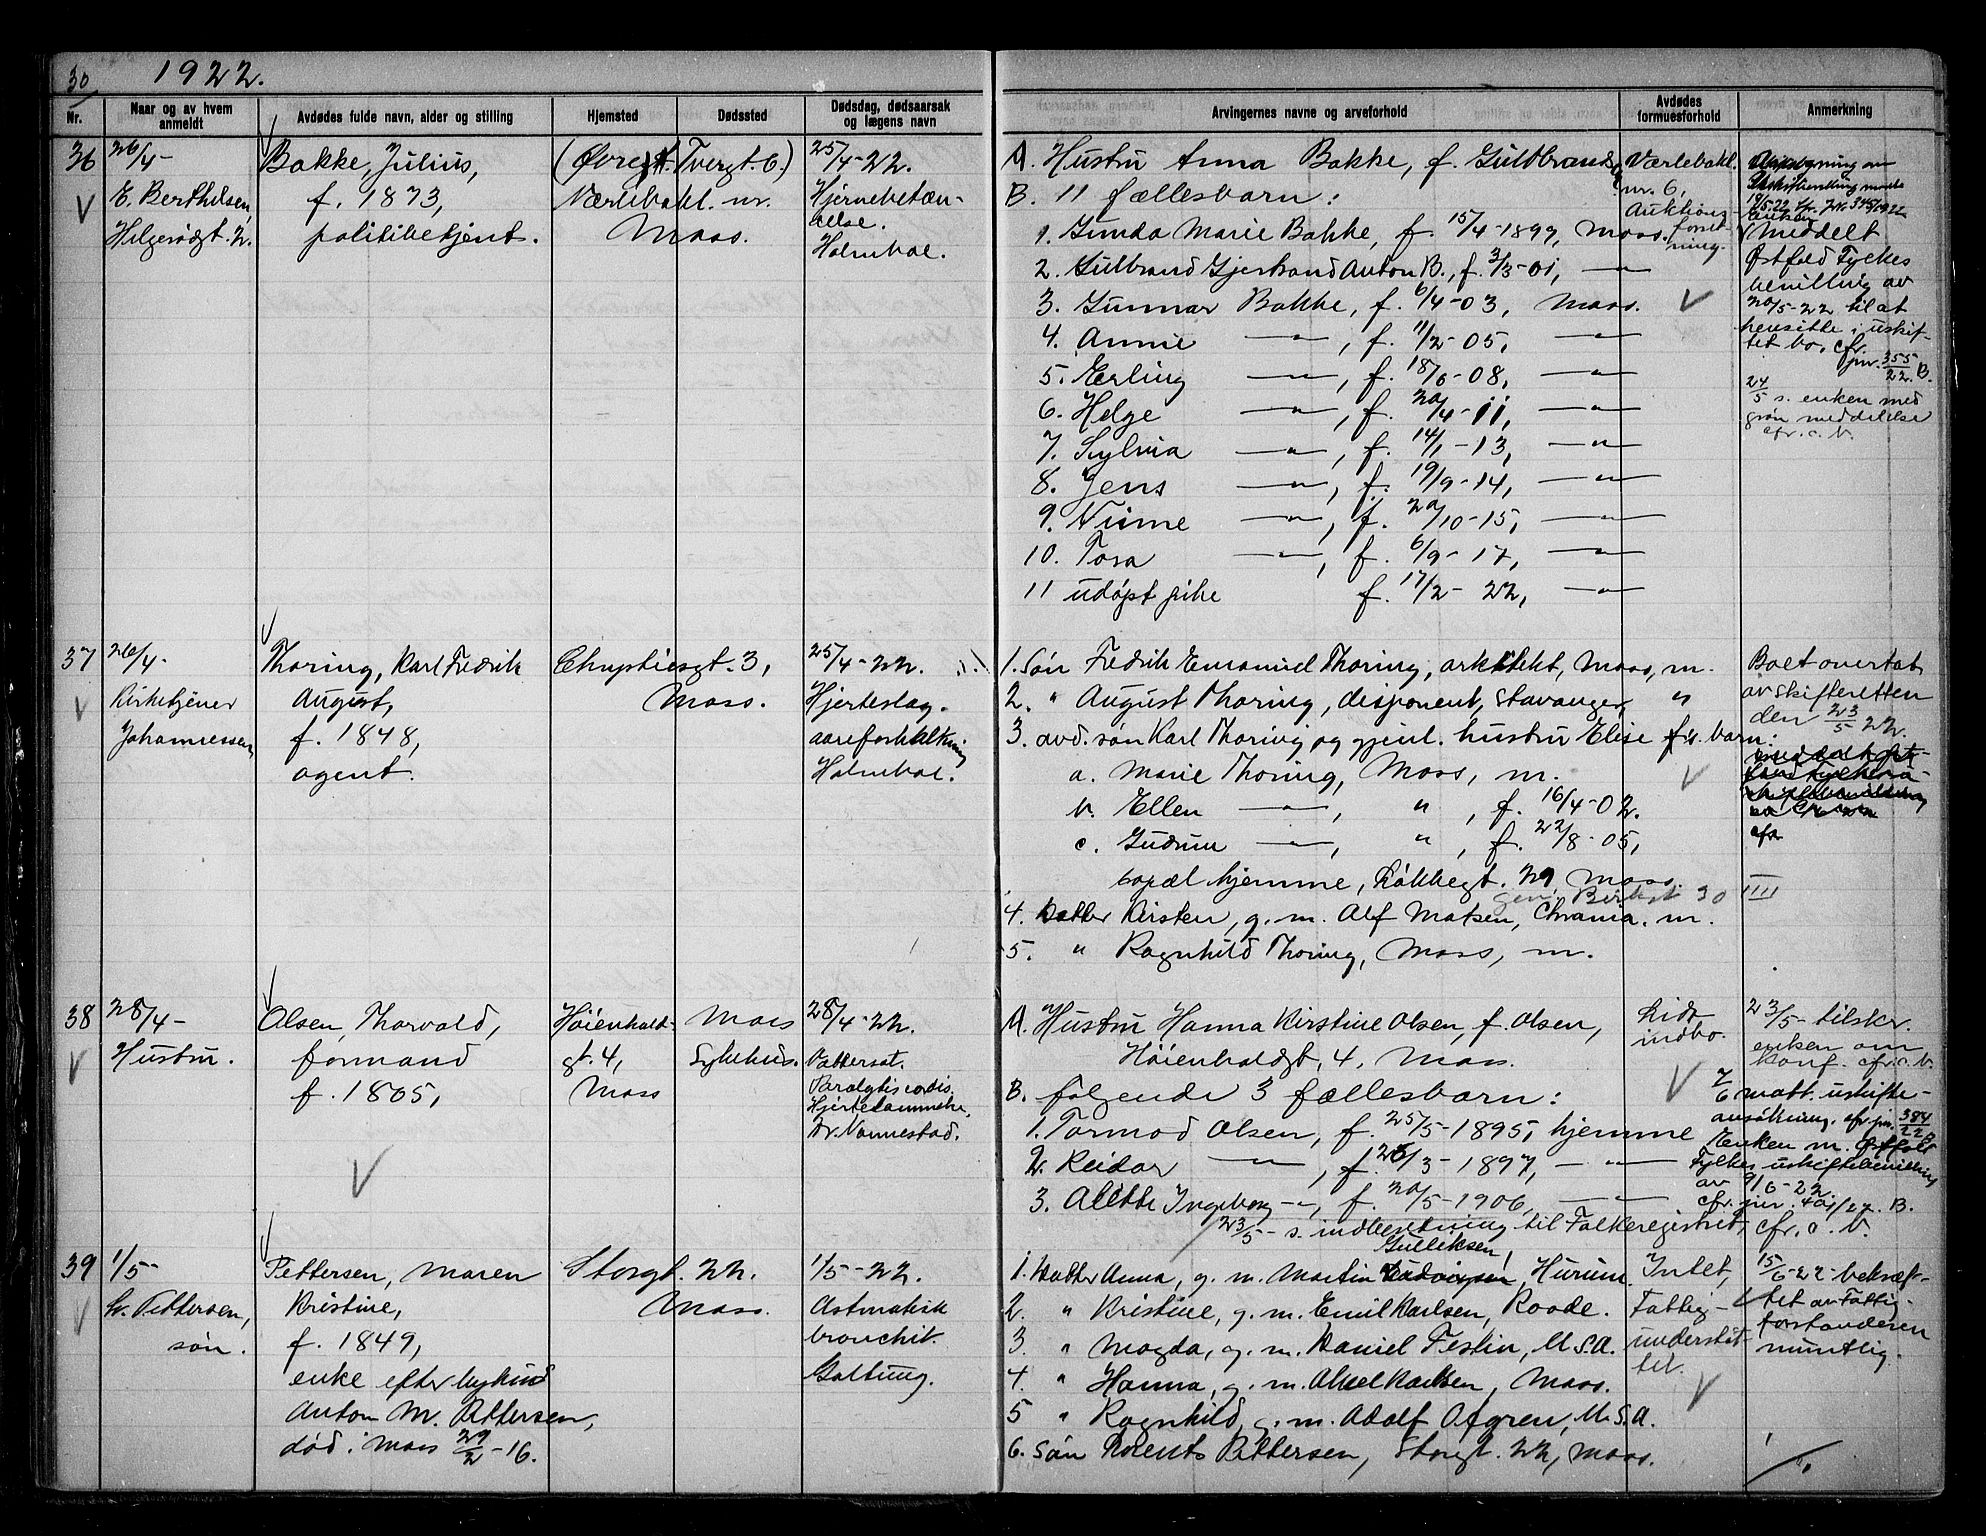 30
1922.
Nr.
Naar og av hvem anmeldt
Avdødes fulde navn, alder og stilling
Hjemsted
Dødssted
Dødsdag, dødsaarsak og lægens navn
Arvingernes navne og arveforhold
Avdødes formuesforhold
Anmerkning
36
26/4-
E. Berthelsen,
Helgerødgt. 2.
Bakke, Julius,
f. 1873,
politibetjent.
Tvergt. 6)
Værlebakk. nr.
Moss.
25/4-22.
Hjernebetæn-
delse.
Holmboe.
A. Hustru Anna Bakke, f. Gulbrands
B. 11 fællesbarn:
1. Gunda Marie Bakke, f. 15/4-1899, Moss.
2. Gulbrand Gjerstrand Anton B., f. 3/3-01, —"—
3. Gunnar Bakke, f. 6/4-03, Moss.
4. Annie —"—, f. 11/2-05, —"—
5. Erling —"—, f. 18/6-08, —"—
6. Helge —"—, f. 20/4-11, —"—
7. Sylvia —"—, f. 14/1-13, —"—
8. Jens —"—, f. 19/9-14, —"—
9. —"—, f. 20/10-15, —"—
10. Tora —"—, f. 6/9-17, —"—
11 udøpt pike f. 17/2-22, —"—
Værlebakk.
nr. 6.
Auktions
forret-
ning.
meddelt
Østfold Fylkes
bevilling av
20/5-22 til at
hensitte i uskif-
tet bo, cfr.
jnr. 355/22. B.
24/5 s. enken med
grøn meddelelse
cfr. c. b.
37
26/4-
Kirketjener
Johannessen
Thoring, Karl Fredrik
August,
f. 1848,
agent.
Chrystiesgt. 3,
Moss.
25/4-22.
Hjerteslag-
aareforkalkning
Holmboe.
1. Søn Fredrik Emanuel Thoring, arkitekt, Moss, m.
2. " August Thoring, disponent, Stavanger, "
3. avd. søn Karl Thoring og gjenl. hustru Elise barn:
a. Marie Thoring, Moss, m.
b. Ellen —"—, " , f. 16/4-02.
c. Gudrun —"—, " , f. 22/8-05,
bopæl hjemme, Løkkegt. 29 Moss.
30
4. Datter Kirsten, g. m. Alf Matsen, Chrania. m.
5. " Ragnhild Thoring, Moss, m.
Boet overtat
av skifteretten
den 23/5 22.
38
28/4-
Hustru.
Olsen, Thorvald,
formand
f. 1865,
Høienhald-
gt. 4,
Moss
Moss
Sykehus.
28/4-22.
Vattersot.
Paralytis cordis
Hjertelammelse.
Dr. Vannestad.
A. Hustru Hanna Kirstine Olsen, f. Olsen,
Høienhaldgt. 4, Moss.
B. følgende 3 fællesbarn:
1. Tormod Olsen, f. 25/5-1895, hjemme
2. Reidar —"—, f. 26/3-1897, —"—
3. Alette Ingeborg —"—, f. 20/5-1906, —"—
23/5- s. indberetning til Folkeregistret, cfr. c. b.
Lidt
indbo.
23/5- tilskr.
enken om
konf. cfr. c. b.
7/6 mott. uskifte-
ansøkning, cfr. jnr. 384/22 B
Enken m. Østfold
Fylkes uskiftebevilling
av 9/6-22.
cfr. jnr. 401/22. B.
39
1/5-
Pettersen,
søn.
Pettersen, Maren
Kristine,
f. 1849,
enke efter bybud
Anton M. Pettersen,
død i Moss 29/2-16.
Storgt. 22.
Moss.
1/5-22.
Astmatisk
bronchit
Galtung.
Gulliksen,
1. Datter Anna, g. m. Martin Hurum.
2. " Kristine, g. m. Emil Karlsen, Raade.
3. " Magda, g. m. Daniel Festin, U.S.A.
4. " Hanna, g. m. Aksel Karlsen, Moss.
5 " Ragnhild, g. m. Adolf Afgren, U.S.A.
6. Søn Pettersen, Storgt. 22, Moss.
Intet,
Fattig-
understøt-
tet.
15/6-22 bekræf-
tet av Fattig-
forstanderen
muntlig.